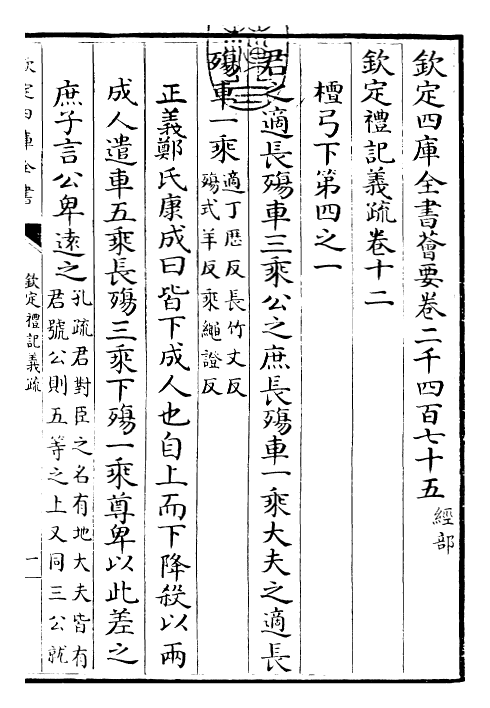 欽定四庫全書薈要卷二千四百七十五 經部
欽定禮記義疏卷十二
檀弓下第四之一
君之適長殤車三乘公之庶長殤車一乘大夫之適長
殤車一乘
適丁歷反長竹丈反
殤式羊反乘繩證反
正義鄭氏康成曰皆下成人也自上而下降殺以兩
成人遣車五乘長殤三乘下殤一乘尊卑以此差之
庶子言公卑遠之
孔疏君對臣之名有地大夫皆有
君號公則五等之上又同三公就
欽定四庫全書
欽定禮記義疏
一